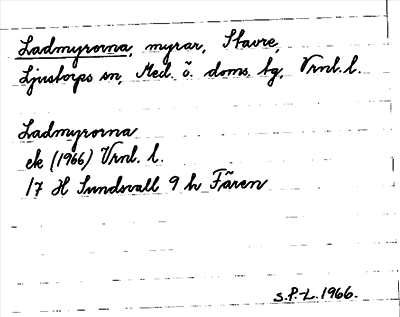 Ladmyrorna, myrar, Stavre,
Ljustorps sn, Med. ö. doms. tg, Vrnl. l.
Ladmyrorna
ek (1966) Vrnl. l.
17 H Sundsvall 9 h Fären
S.P-L. 1966.